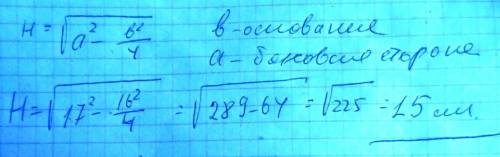 н = √(a² - в²/4) в - основание
а - боковая сторона
H = √(17² - 16²/4) = √(289-64) = √225 = 15 см.